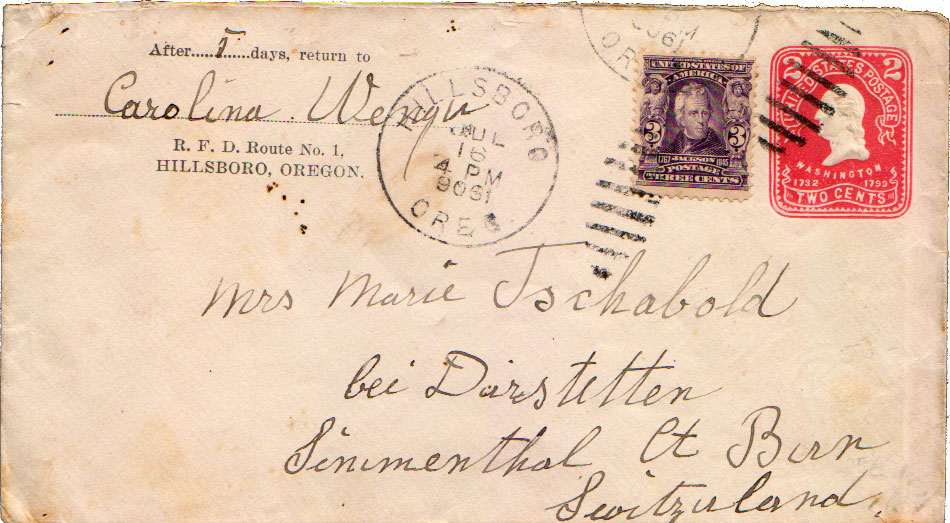 After.....5.....days, return to
Carolina Wenger
R. F. D. Route No. 1,
HILLSBORO, OREGON.
HILLSBORO
JUL
16
4 PM
1906
OREG.
UNITED STATES OF
AMERICA
3 3
1767 JACKSON 1845
POSTAGE
THREE CENTS
2 2
UNITED STATES POSTAGE
WASHINGTON
1732 1799
TWO CENTS
Mrs Marie Tschabold
bei Därstetten
Simmenthal Ct Bern
Switzerland.